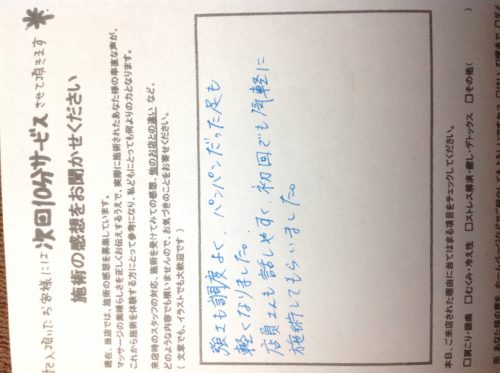 記入頂いたお客様には 次回10分サービス させて頂きます
施術の感想をお聞かせください
現在、当店では、施術の感想を募集しています。
マッサージの素晴らしさを正しくお伝えするうえで、実際に施術されたあなた様の率直な声が、
これから施術を体験する方にとって参考になり、私どもにとっても何よりの力となります。
来店時のスタッフの対応、施術を受けてみての感想、他のお店との違い など、
どのような内容でも構いませんので、お気づきのことをお寄せください。
( 文章でも、イラストでも大歓迎です )
強さも調度よく、パンパンだった足も
軽くなりました。
店員さんも話しやすく、初回でも気軽に
施術してもらいました。
本日、ご来店された理由に当てはまる項目をチェックしてください。
□肩こり・腰痛 □むくみ・冷え性 □ストレス解消・癒し・デトックス □その他(